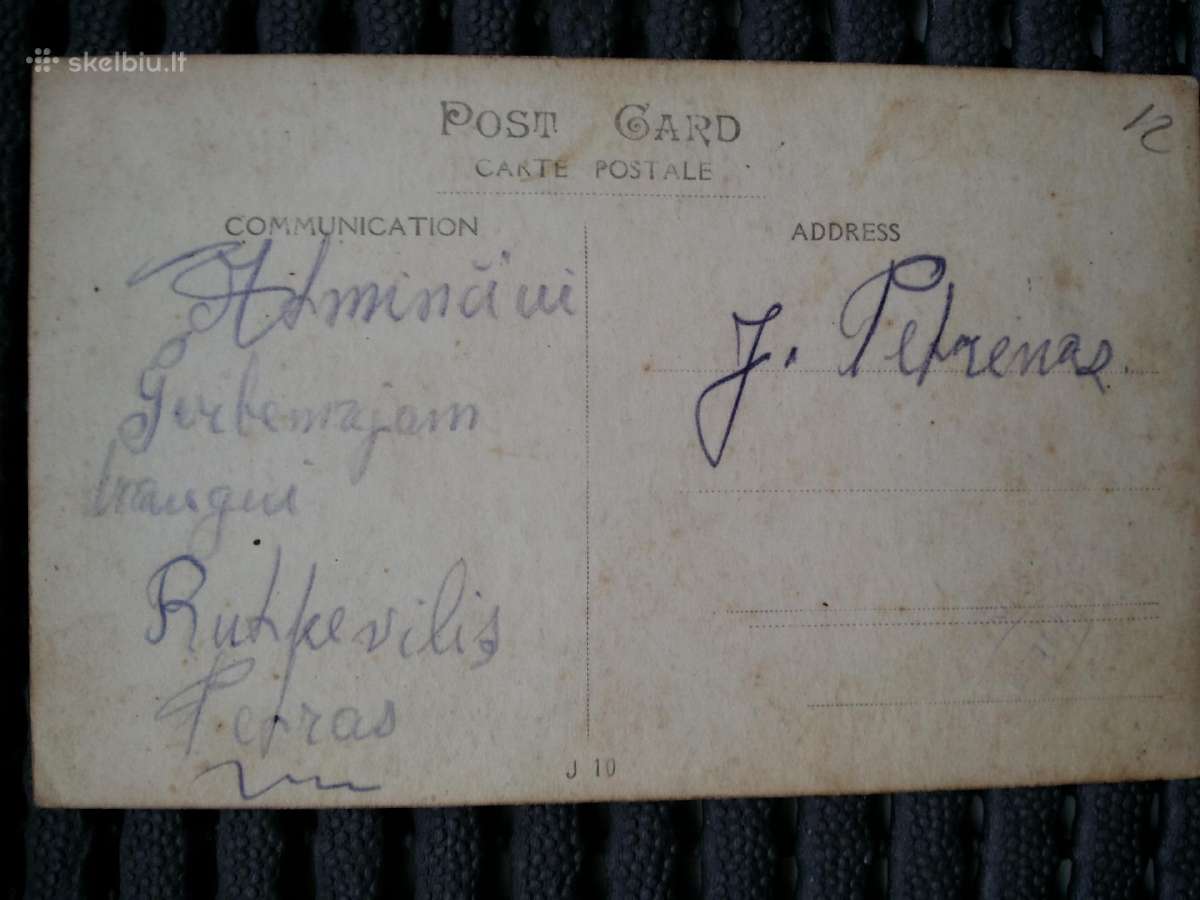 skelbiu.lt
POST CARD
CARTE POSTALE
12
COMMUNICATION
ADDRESS
Atminčiui
J. Petrenas.
Gerbemajam
draugui
Rutkevilis
Petras
J 10